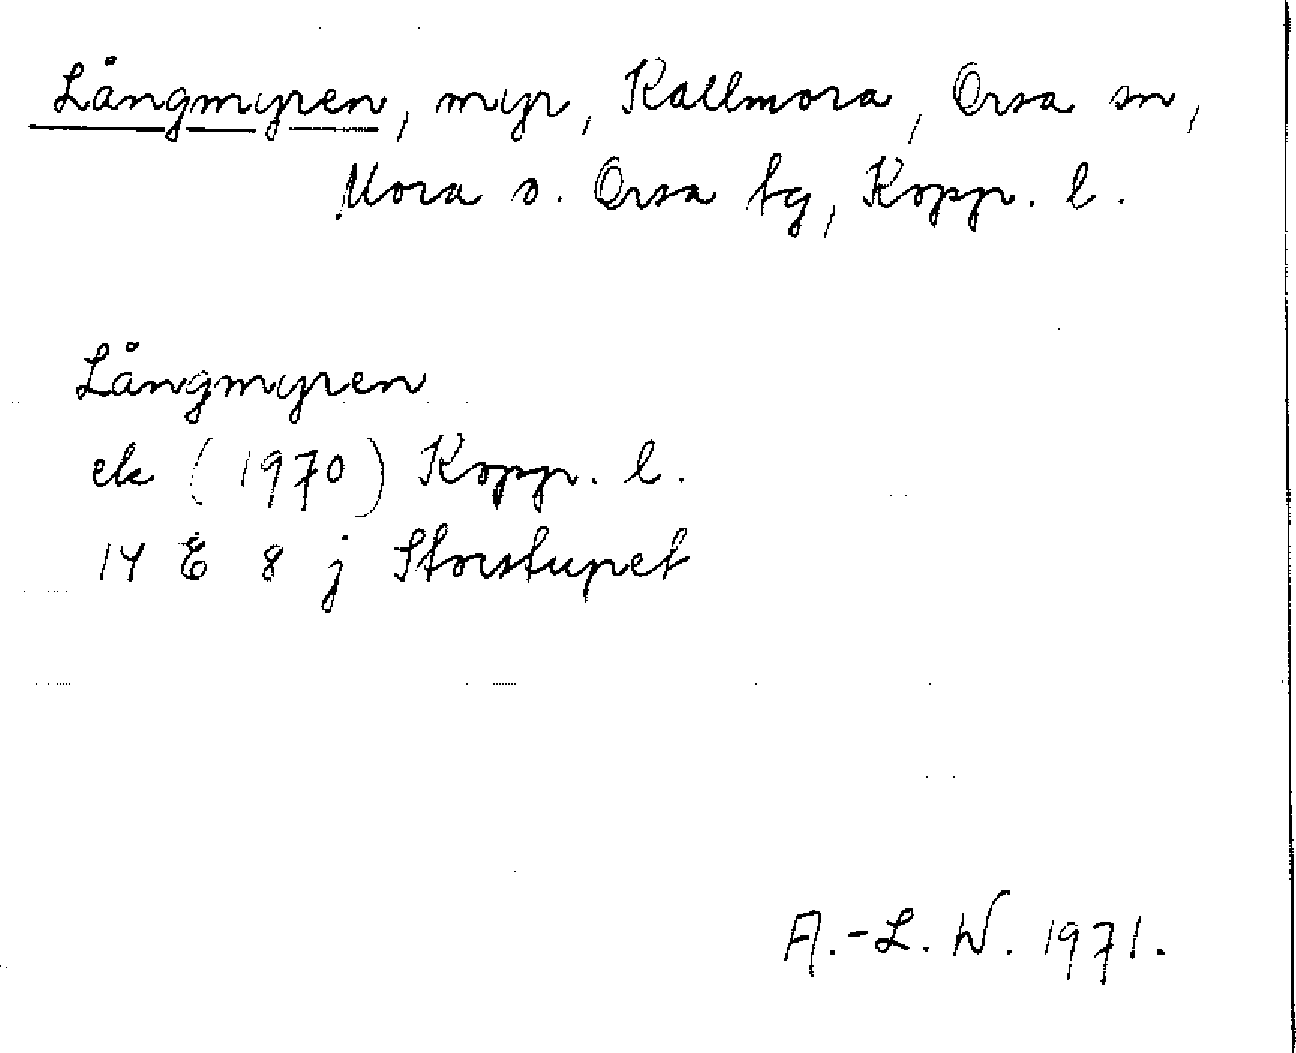 Långmyren, myr, Kallmora, Orsa sn,
Mora o. Orsa tg, Kopp. l.
Långmyren
ek (1970) Kopp. l.
14 E 8 j Storstupet
A.-L. W. 1971.